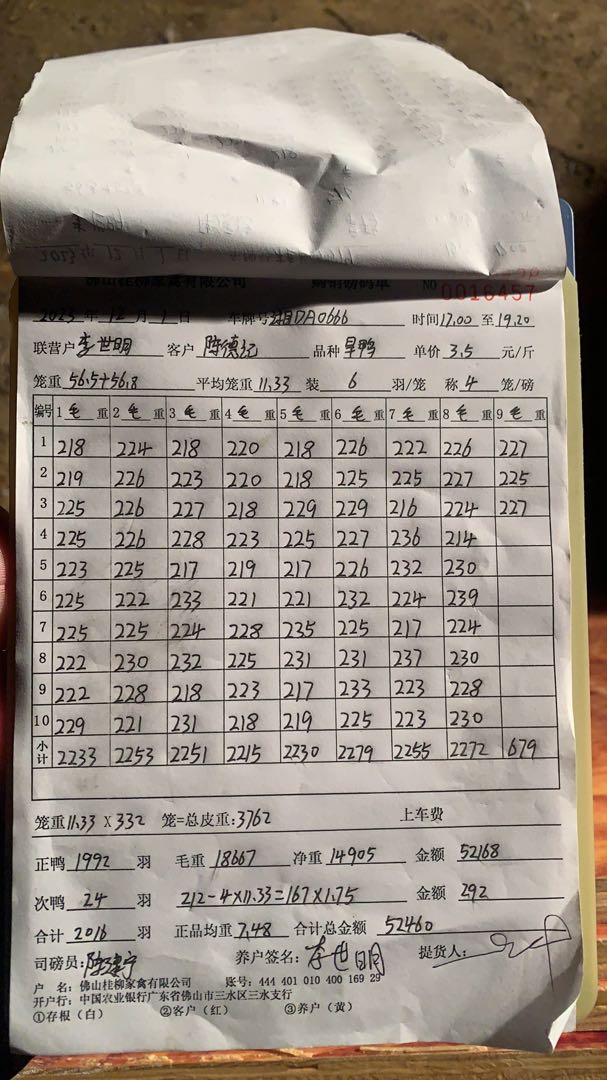 佛山桂柳家禽有限公司 购销磅码单 NO 0016457
2023 年 12 月 1 日 车牌号 湘DA0666 时间 17.00 至 19.20
联营户 李世明 客户 陈德记 品种 旱鸭 单价 3.5 元/斤
笼重 56.5+56.8 平均笼重 11.33 装 6 羽/笼 称 4 笼/磅
编号 1 毛 重 2 毛 重 3 毛 重 4 毛 重 5 毛 重 6 毛 重 7 毛 重 8 毛 重 9 毛 重
1 218 224 218 220 218 226 222 226 227
2 219 226 223 220 218 225 225 227 225
3 225 226 227 218 229 229 216 224 227
4 225 226 228 223 225 227 236 214
5 223 225 217 219 217 226 232 230
6 225 222 233 221 221 232 224 239
7 225 225 224 228 235 225 217 224
8 222 230 232 225 231 231 237 230
9 222 228 218 223 217 233 223 228
10 229 221 231 218 219 225 223 230
小计 2233 2253 2251 2215 2230 2279 2255 2272 679
笼重 11.33 X 332 笼=总皮重: 3762 上车费
正鸭 1992 羽 毛重 18667 净重 14905 金额 52168
次鸭 24 羽 212-4×11.33=167×1.75 金额 292
合计 2016 羽 正品均重 7.48 合计总金额 52460
司磅员: 养户签名: 李世明 提货人:
户 名: 佛山桂柳家禽有限公司 账号: 444 401 010 400 169 29
开户行: 中国农业银行广东省佛山市三水区三水支行
①存根（白） ②客户（红） ③养户（黄）